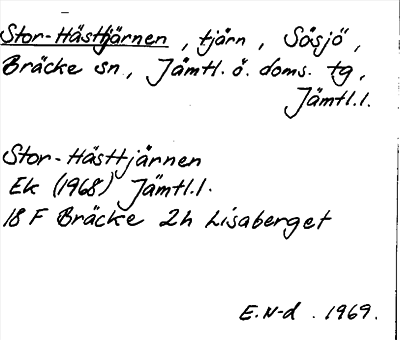 Stor-Hästtjärnen, tjärn, Sösjö,
Bräcke sn., Jämtl. ö. doms. tg,
Jämtl.l.
Stor-Hästtjärnen
Ek (1968) Jämtl.l.
18 F Bräcke 2h Lisaberget
E.N-d. 1969.